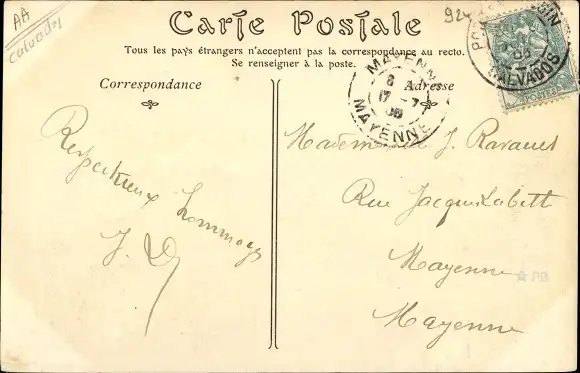 AA
Calvados
924
Carte Postale
Tous les pays étrangers n'acceptent pas la correspondance au recto.
Se renseigner à la poste.
Correspondance
Adresse
MAYENNE
8
17 - 7
MAYENNE
CALVADOS
POSTES
Respectueux hommages
J. D
Mademoiselle J. Ravaues
Rue Jacquelabett
Mayenne
Mayenne
PB